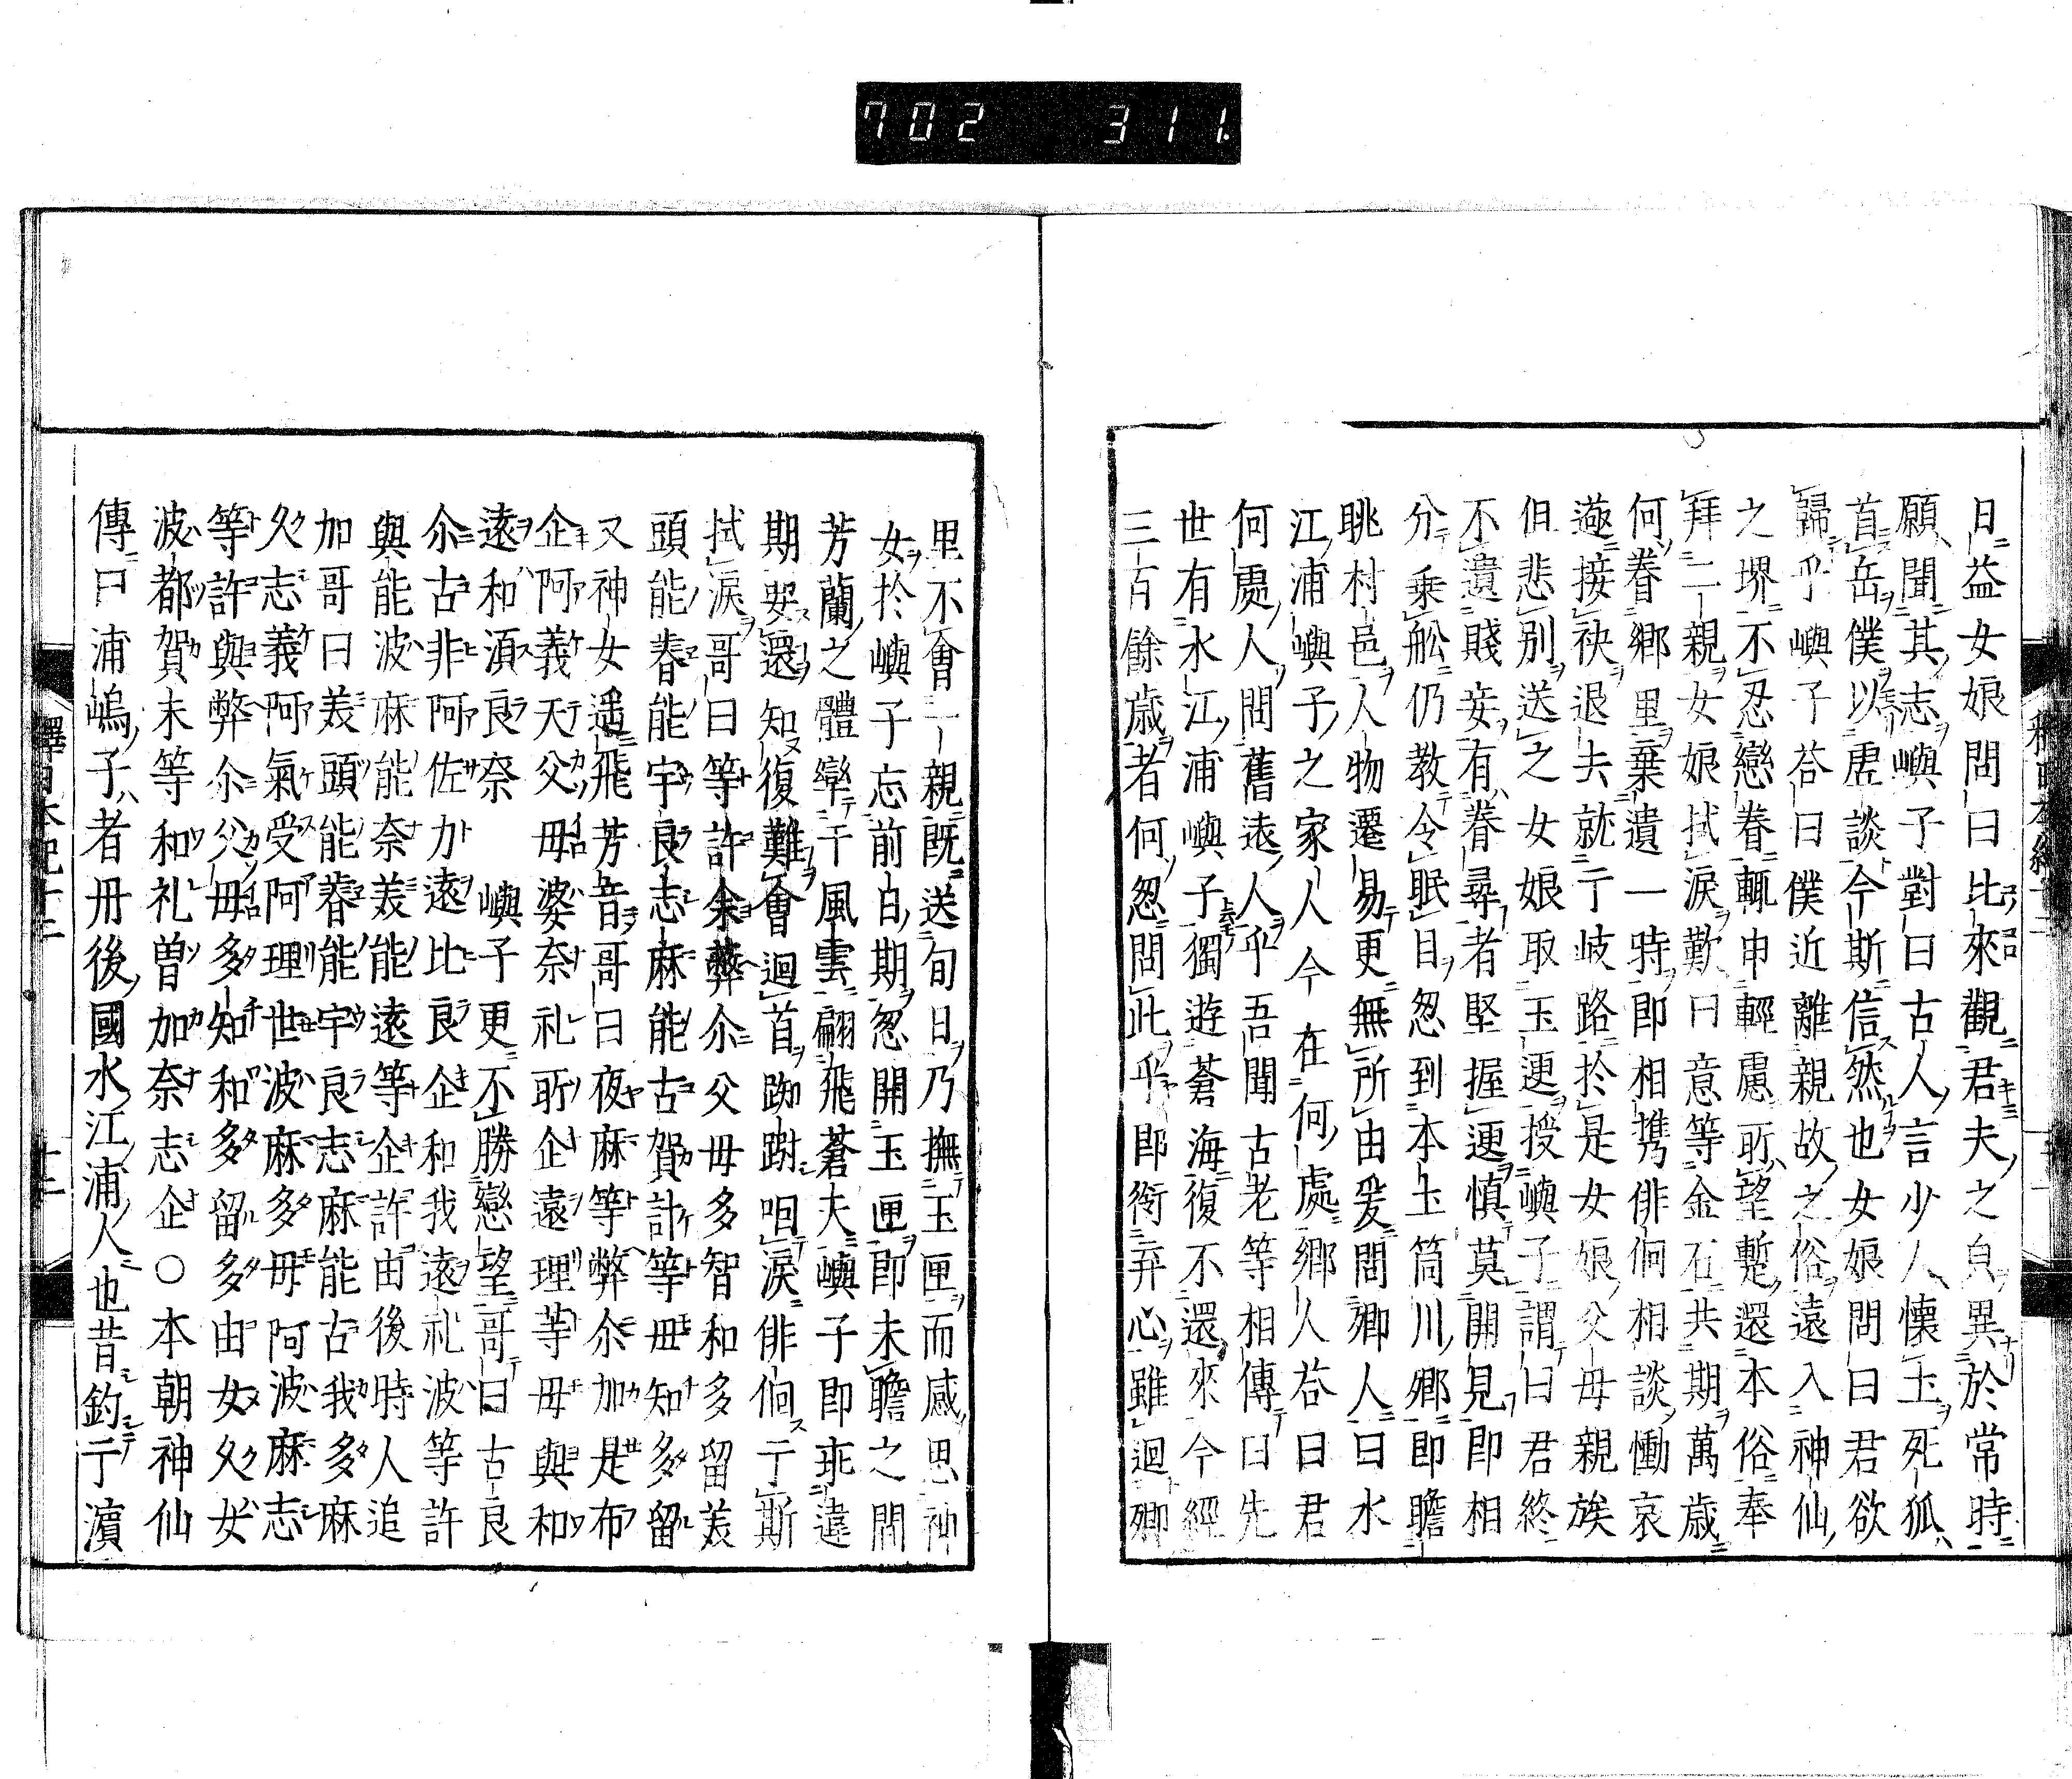 702 311.
日益女娘問曰比來觀君夫之皃異於常時
願聞其志嶼子對曰古人言少人懐土死狐
首岳僕以虚談今斯信然也女娘問曰君欲
歸乎嶼子荅曰僕近離親故之俗遠入神仙
之堺不忍戀眷輙申輕慮所望蹔還本俗奉
拜二親女娘拭涙歎曰意等金石共期萬歳
何眷郷里棄遺一時即相携俳佪相談慟哀
遊接袂退去就于岐路於是女娘父母親族
但悲別送之女娘取玉匣授嶼子謂曰君終
不遺賤妾有眷尋者堅握匣慎莫開見即相
分乗舩仍教令眠目忽到本土筒川郷即瞻
眺村邑人物遷易更無所由爰問郷人曰水
江浦嶼子之家人今在何處郷人荅曰君
何處人問舊遠人乎吾聞古老等相傳曰先
世有水江浦嶼子獨遊蒼海復不還來今經
三百餘歳者何忽問此乎即銜弃心雖迴郷
里不會一親既送旬日乃撫玉匣而感思神
女於嶼子忘前日期忽開玉匣即未瞻之間
芳蘭之體率于風雲翩飛蒼天嶼子即乖違
期要還知復難會迴首踟蹰咽涙俳佪于斯
拭涙哥曰等許余弊尒父母多智和多留美
頭能睠能宇良志麻能古賀計等母知多留
又神女遥飛芳音哥曰夜麻等弊尒加是布
企阿義天父母婆奈礼所企遠理等母與和
遠和湏良奈 嶼子更不勝戀望哥曰古良
尒古非阿佐力遠比良企和我遠礼波等許
與能波麻能奈美能遠等企許由後時人追
加哥曰美頭能睠能宇良志麻能古我多麻
久志義阿氣受阿理世波麻多母阿波麻志
等許與弊尒父母多知和多留多由女久女
波都賀末等和礼曽加奈志企○本朝神仙
傳曰浦嶋子者丹後國水江浦人也昔釣于濱